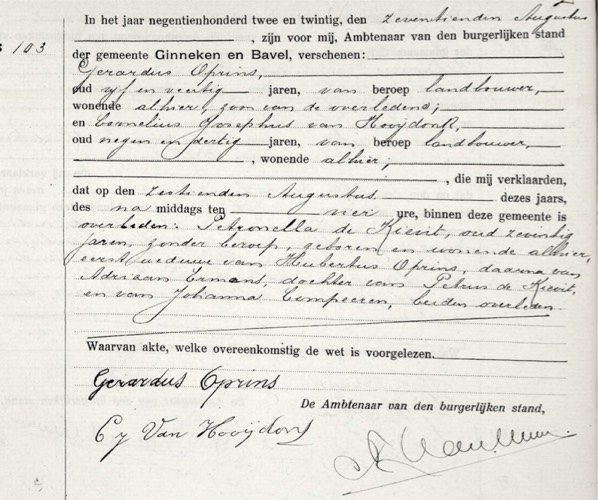 In het jaar negentienhonderd twee en twintig, den zeventienden Augustus
, zijn voor mij, Ambtenaar van den burgerlijken stand
103
der gemeente Ginneken en Bavel, verschenen:
Gerardus Oprins,
oud vijf en veertig jaren, van beroep landbouwer,
wonende alhier, zoon van de overledene;
en Cornelius Josephus van Hooijdonk,
oud negen en dertig jaren, van beroep landbouwer,
, wonende alhier;
, die mij verklaarden,
dat op den zestienden Augustus dezes jaars,
des na middags ten vier ure, binnen deze gemeente is
overleden: Petronella de Kievit, oud zeventig
jaren, zonder beroep, geboren en wonende alhier,
eerst weduwe van Huibertus Oprins, daarna van
Adriaan Ermens, dochter van Petrus de Kievit,
en van Johanna Compeeren, beiden overleden.
Waarvan akte, welke overeenkomstig de wet is voorgelezen.
Gerardus Oprins
De Ambtenaar van den burgerlijken stand,
C J Van Hooijdonk